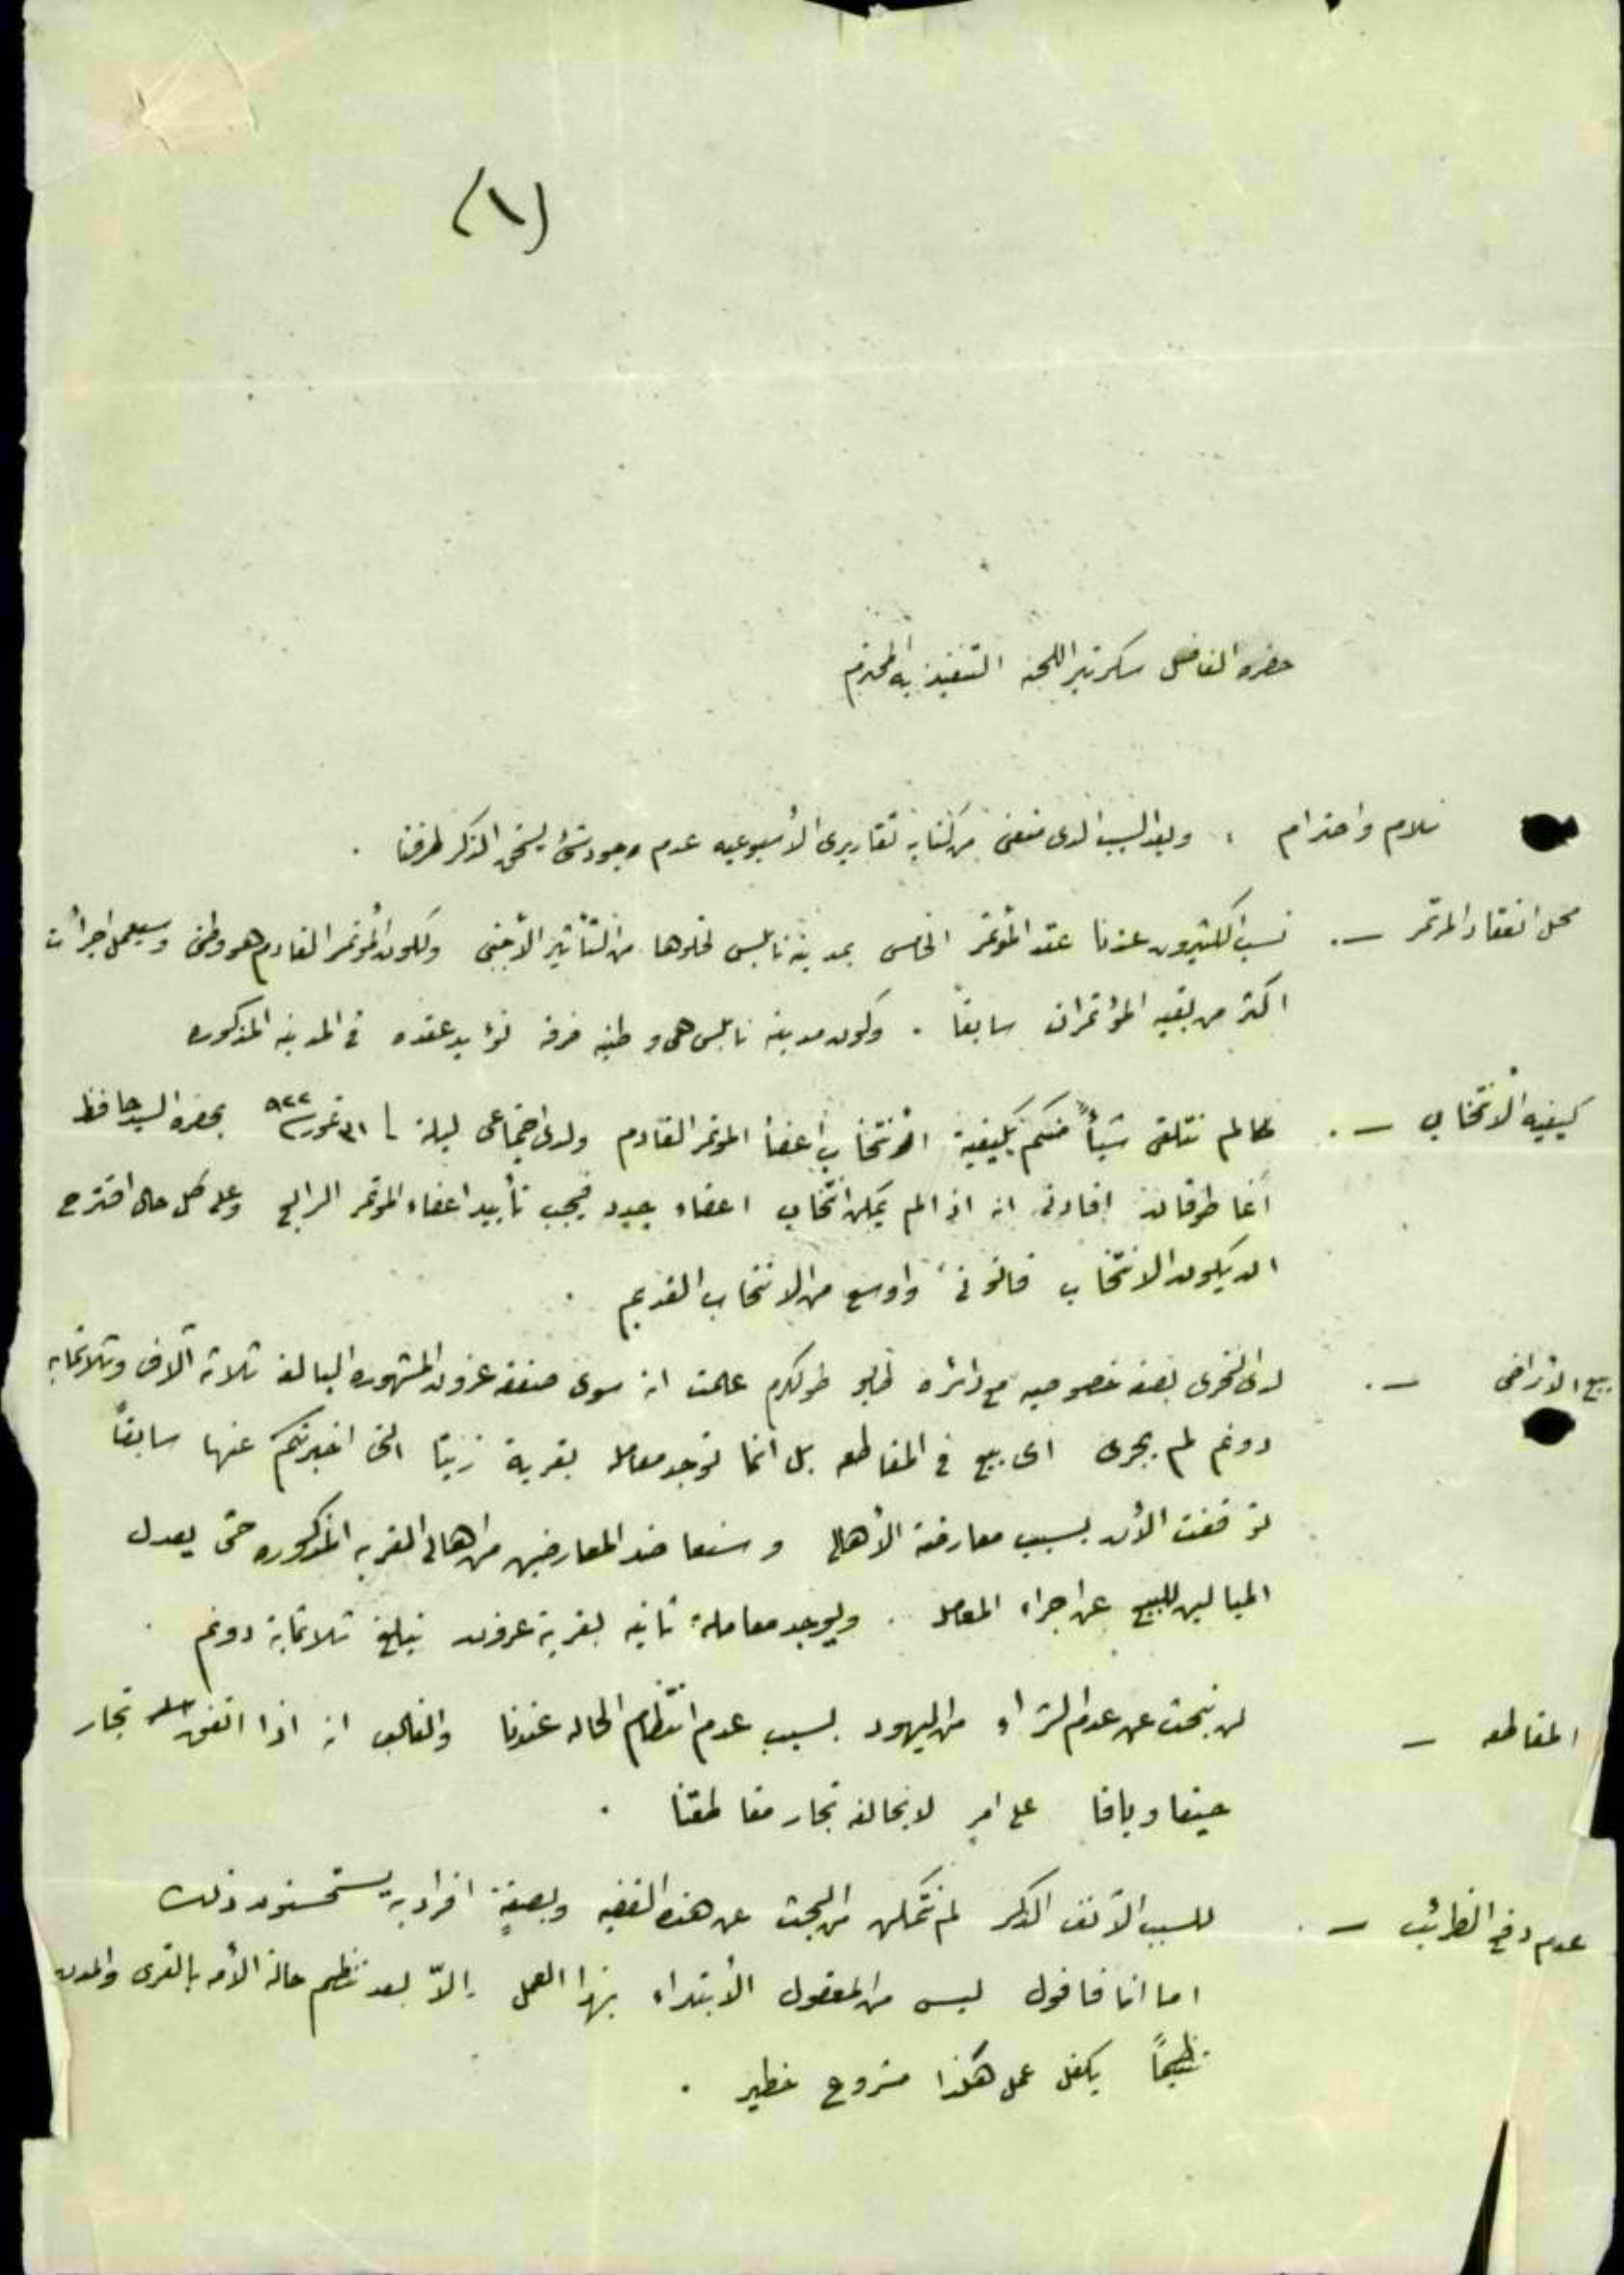 (١)
حضرة الفاضل سكرتير اللجنه التنفيذيه المحترم
سلام واحترام ، وبعد السبب الذي منعني من كتابة تقاريري الأسبوعيه عدم وجود شئ يستحق الذكر طرفنا .
محل انعقاد المؤتمر — . نسب الكثيرون عندنا عقد المؤتمر الخامس بمدينة نابلس لخلوها من التأثير الأجنبي ولكون المؤتمر القادم هو وطني وسيعمل اجراأت
اكثر من بقية المؤتمرات سابقاً . وكون مدينة نابلس هي وطنيه صرفه نؤيد عقده في المدينه المذكوره
كيفية الأنتخاب — . طالما لم نتلقى شيأً منكم بكيفية الأنتخاب أعضأ المؤتمر القادم ولدى اجتماعي ليلة ٣١ تموز ٩٢٢ بحضرة السيد حافظ
أغا طوقان افادني انه اذا لم يمكن انتخاب اعضاء جدد فيجب تأييد اعضاء المؤتمر الرابع وعلى كل حال اقترح
ان يكون الانتخاب قانونيً واوسع من الانتخاب القديم .
بيع الأراضي — . لدى التحري بصفه خصوصيه مع دائرة طابو طولكرم علمت انه سوى صفقة عزون المشهوره البالغه ثلاثة آلاف وثلاثمايه
دونم لم يجري اي بيع في المقاطعه بل انما توجد معامله بقرية زيتا التي اخبرتكم عنها سابقاً
توقفت الأن بسبب معارضة الأهالي وسنعاضد المعارضين من اهالي القريه المذكوره حتى يعدل
الميالين للبيع عن اجراء المعامله . ويوجد معاملة ثانيه بقرية عزون تبلغ ثلاثماية دونم .
المقاطعه — لم نبحث عن عدم الشراء من اليهود بسبب عدم انتظام الحاله عندنا والغالب انه اذا اتفق تجار
حيفا ويافا على امر لا يخالفه تجار مقاطعتنا .
عدم دفع الضرائب — . للسبب الآنف الذكر لم نتمكن من البحث عن هذه القضيه وبصفةٍ افراديه يستحسنون ذلك
اما انا فاقول ليس من المعقول الأبتداء بهذا العمل إلاّ بعد تنظيم حالة الأمه بالقرى والمدن
تنظيماً يكفل عمل هكذا مشروع خطير .